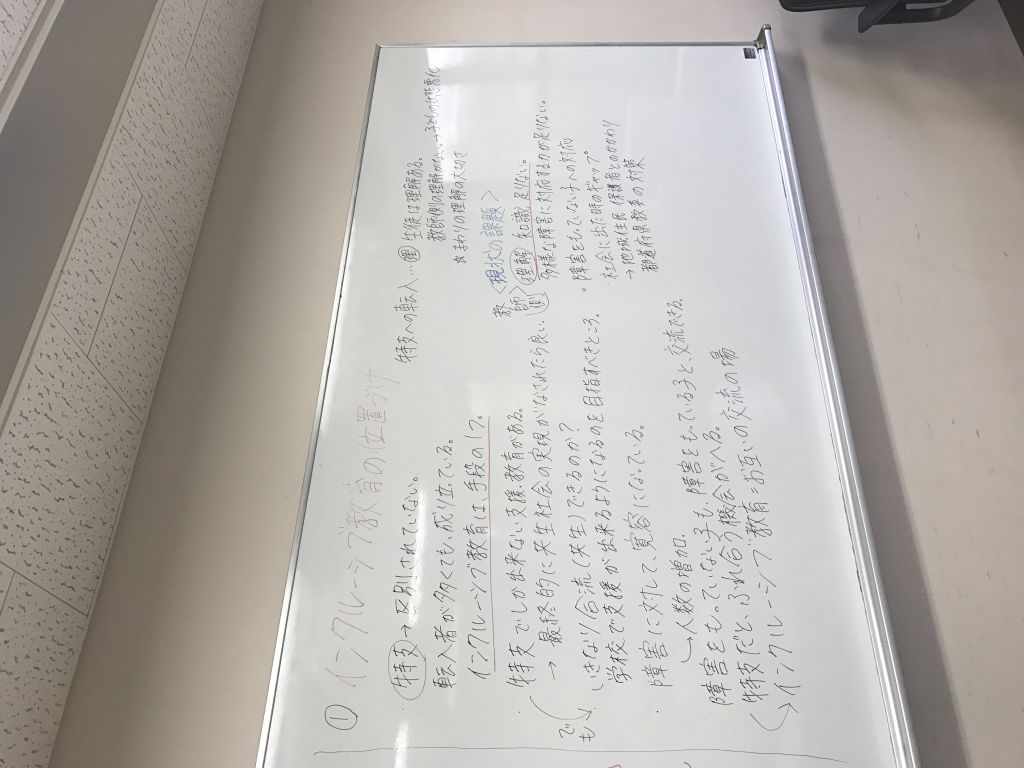 ① インクルーシブ教育の位置づけ
・特支→区別されていない。
転入者が多くても、成り立っている。
インクルーシブ教育は、手段の1つ。
・特支でしか出来ない支援教育がある。
→ 最終的に共生社会の実現がなされたら良い。
でも、いきなり合流(共生)できるのか?
学校で支援が出来るようになるのを目指すべきところ。
・障害に対して、寛容になっている。
→人数の増加。
・障害をもっていない子も、障害をもっている子と、交流できる。
特支だと、ふれ合う機会がへる。
→インクルーシブ教育=お互いの交流の場
特支への転入…
生徒は理解ある。
教師側の理解
まわりの理解の大切さ
<現状の課題>
教師側
理解・知識が足りない。
多様な障害に対応する力が足りない。
・障害をもっていない子への対応
・社会に出た時のギャップ
→地域住民/保護者とのかかわり
都道府県教委の対策